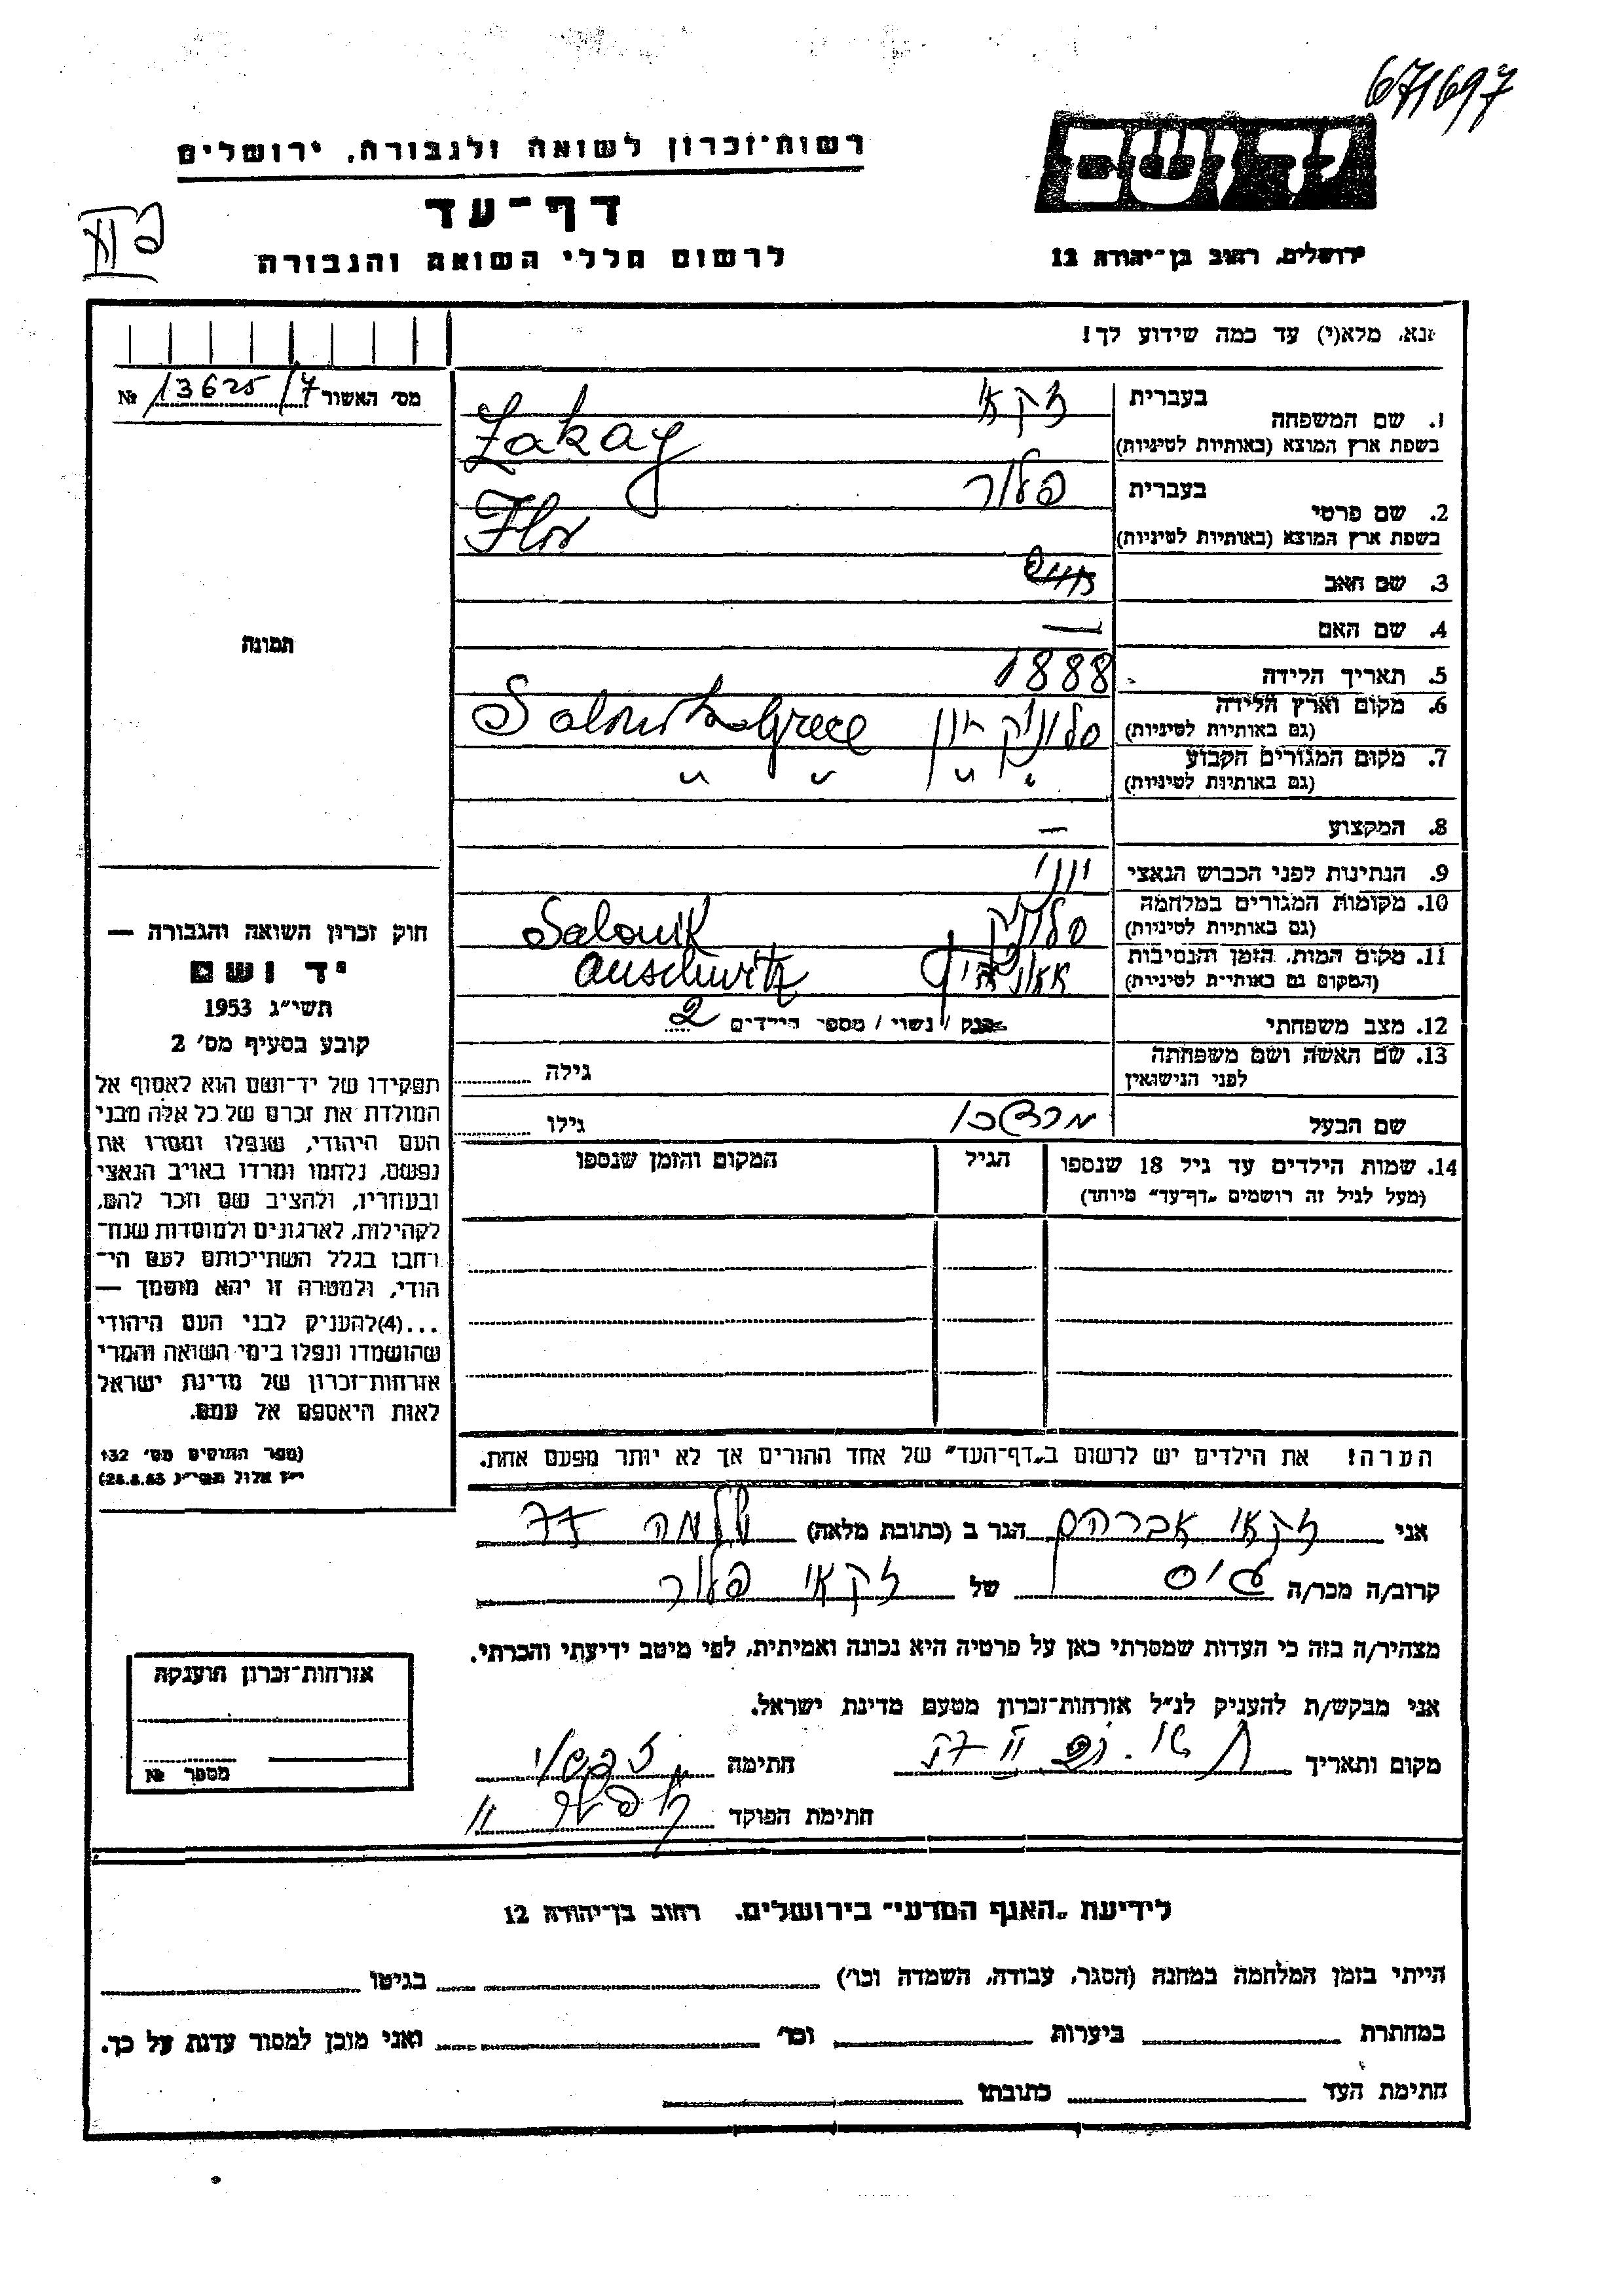 671697
רשות־זכרון לשואה ולגבורה, ירושלים
יד ושם
דף־עד
לרשום חללי השואה והגבורה
ירושלים, רחוב בן־יהודה 12
נא, מלא(י) עד כמה שידוע לך!
מס׳ האשור 13625/7 №
1. שם המשפחה
בעברית זקאי
בשפת ארץ המוצא (באותיות לטיניות) Zakay
2. שם פרטי
בעברית פלור
בשפת ארץ המוצא (באותיות לטיניות) Flor
3. שם האב
4. שם האם —
5. תאריך הלידה 1888
6. מקום וארץ הלידה סלוניקי יון Grece
(גם באותיות לטיניות)
7. מקום המגורים הקבוע " " " "
(גם באותיות לטיניות)
8. המקצוע —
9. הנתינות לפני הכבוש הנאצי יוני
10. מקומות המגורים במלחמה סלוניק Salonik
(גם באותיות לטיניות)
11. מקום המות, הזמן והנסיבות Auschwitz
(המקום גם באותיות לטיניות)
12. מצב משפחתי רווק / נשוי / מספר הילדים 2
13. שם האשה ושם משפחתה גילה
לפני הנישואין
שם הבעל מרדכי גילו
14. שמות הילדים עד גיל 18 שנספו הגיל המקום והזמן שנספו
(מעל לגיל זה רושמים „דף־עד” מיוחד)
הערה! את הילדים יש לרשום ב„דף־העד” של אחד ההורים אך לא יותר מפעם אחת.
תמונה
חוק זכרון השואה והגבורה —
יד ושם
תשי״ג 1953
קובע בסעיף מס׳ 2
תפקידו של יד־ושם הוא לאסוף אל
המולדת את זכרם של כל אלה מבני
העם היהודי, שנפלו ומסרו את
נפשם, נלחמו ומרדו באויב הנאצי
ובעוזריו, ולהציב שם וזכר להם,
לקהילות, לארגונים ולמוסדות שנח־
רבו בגלל השתייכותם לעם הי־
הודי, ולמטרה זו יהא מוסמך —
...(4)להעניק לבני העם היהודי
שהושמדו ונפלו בימי השואה והמרי
אזרחות־זכרון של מדינת ישראל
לאות היאספם אל עמם.
(ספר החוקים מס׳ 132
י״ז אלול תשי״ג 28.8.53)
אני זקאי אברהם הגר ב (כתובת מלאה) שלמה 77
קרוב/ה מכר/ה גיס של זקאי פלור
מצהיר/ה בזה כי העדות שמסרתי כאן על פרטיה היא נכונה ואמיתית, לפי מיטב ידיעתי והכרתי.
אני מבקש/ת להעניק לנ״ל אזרחות־זכרון מטעם מדינת ישראל.
מקום ותאריך חתימה
חתימת הפוקד
אזרחות־זכרון הוענקה
מספר №
לידיעת „האגף המדעי” בירושלים, רחוב בן־יהודה 12
הייתי בזמן המלחמה במחנה (הסגר, עבודה, השמדה וכו׳) בגיטו
במחתרת ביערות וכו׳ ואני מוכן למסור עדות על כך.
חתימת העד כתובתו